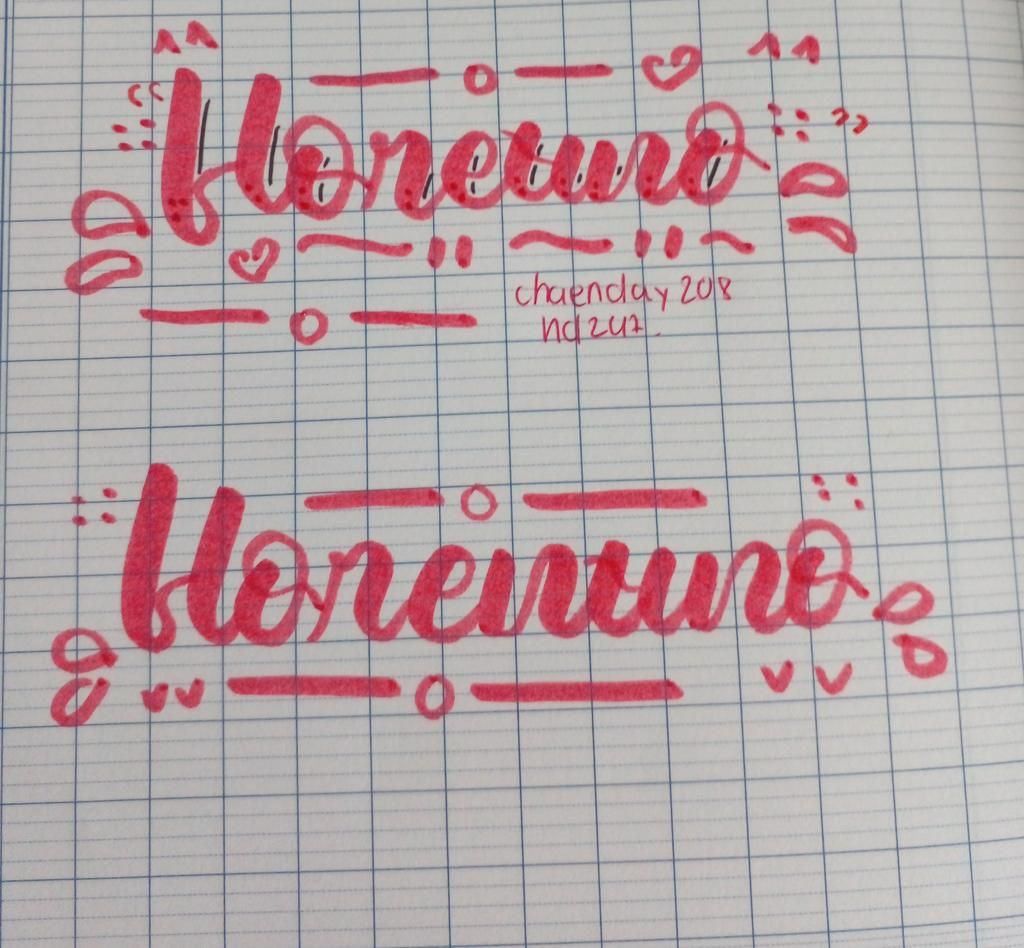 floretino
chaenday 208
nd247.
florentino